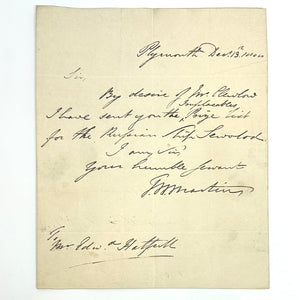 Plymouth Decr. 13th
Sir,
By desire of Mr.
Implacables
I have sent you the Prize List
for the Russian Ship Sewolod
I am Sir
Your humble Servant
Martin
To
Mr. Edwd. Hatfull